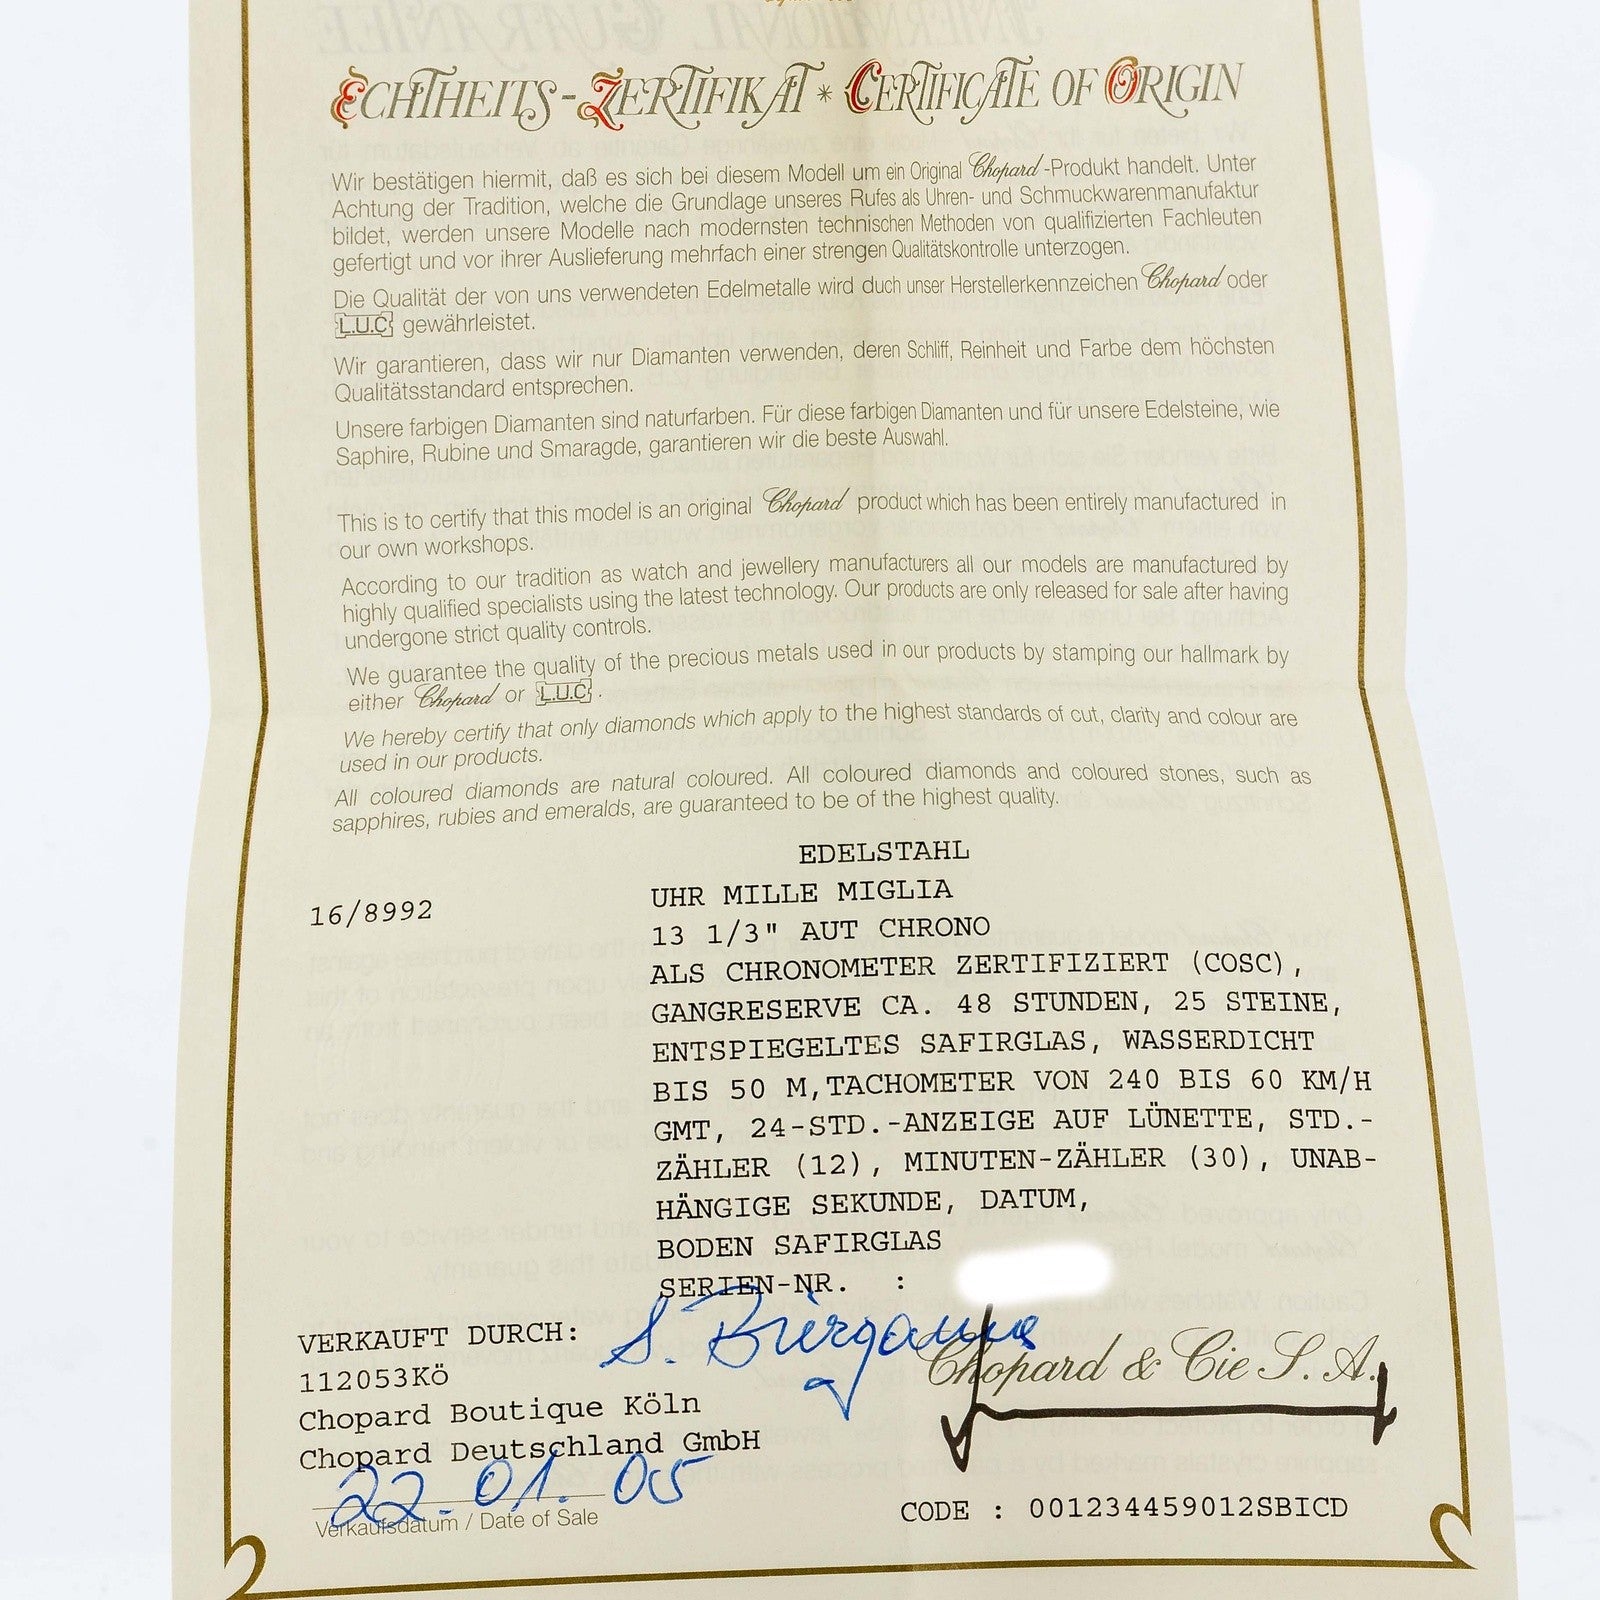 ECHTHEITS-ZERTIFIKAT * CERTIFICATE OF ORIGIN
Wir bestätigen hiermit, daß es sich bei diesem Modell um ein Original Chopard-Produkt handelt. Unter
Achtung der Tradition, welche die Grundlage unseres Rufes als Uhren- und Schmuckwarenmanufaktur
bildet, werden unsere Modelle nach modernsten technischen Methoden von qualifizierten Fachleuten
gefertigt und vor ihrer Auslieferung mehrfach einer strengen Qualitätskontrolle unterzogen.
Die Qualität der von uns verwendeten Edelmetalle wird duch unser Herstellerkennzeichen Chopard oder
L.U.C gewährleistet.
Wir garantieren, dass wir nur Diamanten verwenden, deren Schliff, Reinheit und Farbe dem höchsten
Qualitätsstandard entsprechen.
Unsere farbigen Diamanten sind naturfarben. Für diese farbigen Diamanten und für unsere Edelsteine, wie
Saphire, Rubine und Smaragde, garantieren wir die beste Auswahl.
This is to certify that this model is an original Chopard product which has been entirely manufactured in
our own workshops.
According to our tradition as watch and jewellery manufacturers all our models are manufactured by
highly qualified specialists using the latest technology. Our products are only released for sale after having
undergone strict quality controls.
We guarantee the quality of the precious metals used in our products by stamping our hallmark by
either Chopard or L.U.C.
We hereby certify that only diamonds which apply to the highest standards of cut, clarity and colour are
used in our products.
All coloured diamonds are natural coloured. All coloured diamonds and coloured stones, such as
sapphires, rubies and emeralds, are guaranteed to be of the highest quality.
EDELSTAHL
16/8992 UHR MILLE MIGLIA
13 1/3" AUT CHRONO
ALS CHRONOMETER ZERTIFIZIERT (COSC),
GANGRESERVE CA. 48 STUNDEN, 25 STEINE,
ENTSPIEGELTES SAFIRGLAS, WASSERDICHT
BIS 50 M,TACHOMETER VON 240 BIS 60 KM/H
GMT, 24-STD.-ANZEIGE AUF LÜNETTE, STD.-
ZÄHLER (12), MINUTEN-ZÄHLER (30), UNAB-
HÄNGIGE SEKUNDE, DATUM,
BODEN SAFIRGLAS
SERIEN-NR. :
VERKAUFT DURCH: S.
112053KÖ
Chopard & Cie S. A.
Chopard Boutique Köln
Chopard Deutschland GmbH
22.01.05
Verkaufsdatum / Date of Sale
CODE : 001234459012SBICD